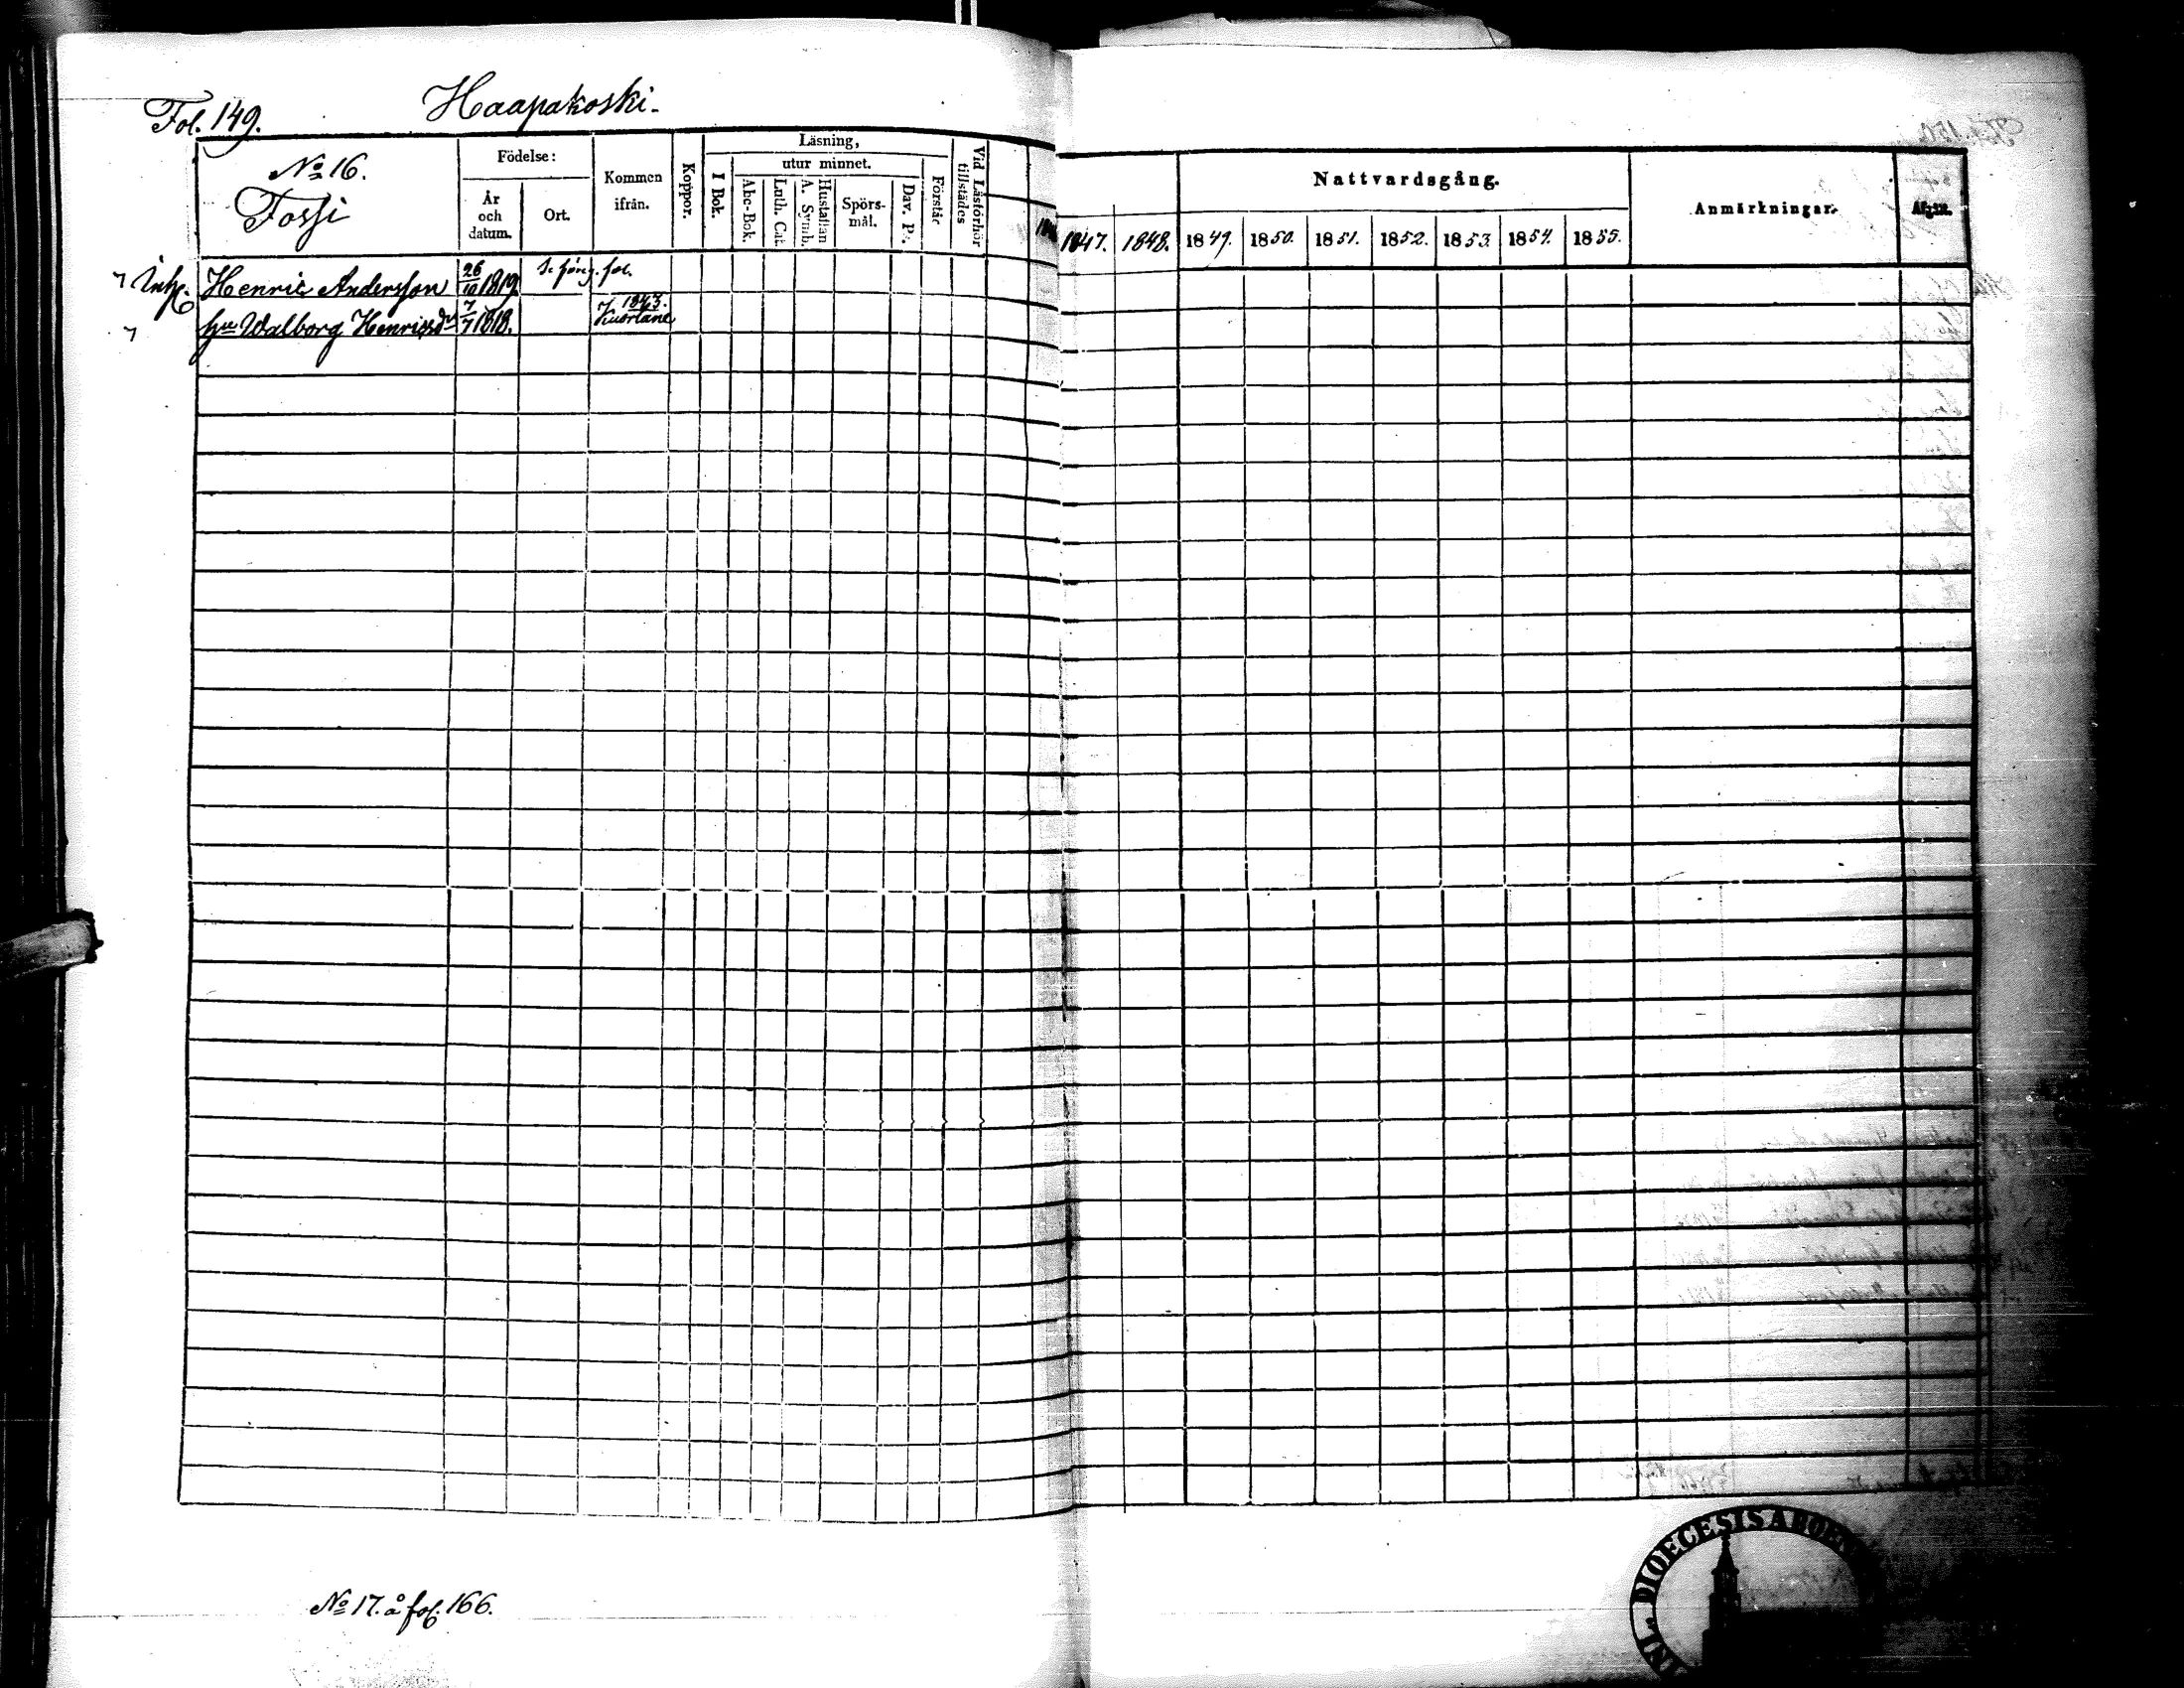 Fol. 149.
Haapakoski.
No 16.
Fossi
Födelse:
År och datum.
Ort.
Kommen ifrån.
Koppor.
Läsning,
I Bok.
utur minnet.
Abc-Bok.
Luth. Cat.
Hustaflan A. Symb.
Spörs-mål.
Dav. Ps.
Förstår
Vid Läsförhör tillstädes
1847.
1848.
Nattvardsgång.
1849.
1850.
1851.
1852.
1853.
1854.
1855.
Anmärkningar.
Afgått.
Inh. Henric Andersson 26/10 1819. Se föreg. fol.
hu Walborg Henricsdr 7/7 1818. 1843. Kuortane
No 17. å fol. 166.
DIOECESIS ABOEN